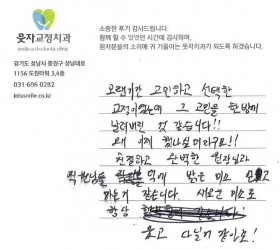 웃자교정치과
경기도 성남시 중원구 성남대로
1156 도원타워 3,4층
031 606 0282
letssmile.co.kr
소중한 후기 감사드립니다.
함께 할 수 있었던 시간에 감사하며,
환자분들의 소리에 귀 기울이는 웃자치과가 되도록 하겠습니다.
오랫기간 고민하고 선택한
교정이었는데 그 고민을 한방에
날려버린 것 같습니다!!
왜 이제 했나싶더라구요!!
친절하고 완벽한 원장님과
직원분들 덕에 밝은 미소 안고
가는거 같습니다. 시원한 미소로
항상
웃고 다닐거 같아요!